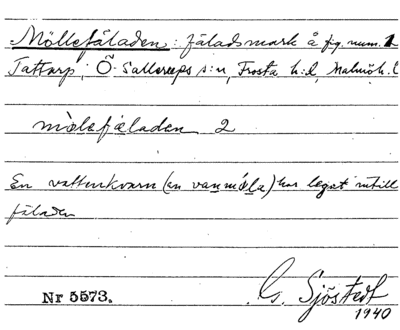 Möllefäladen: fäladsmark å fig. num. 1
Tattarp; Ö. Sallerups s:n, Frosta h:d, Malmöh. l
mölefäladen 2
En vattenkvarn (en vanmöla) har legat intill
fäladen
Nr 5573.
G. Sjöstedt
1940